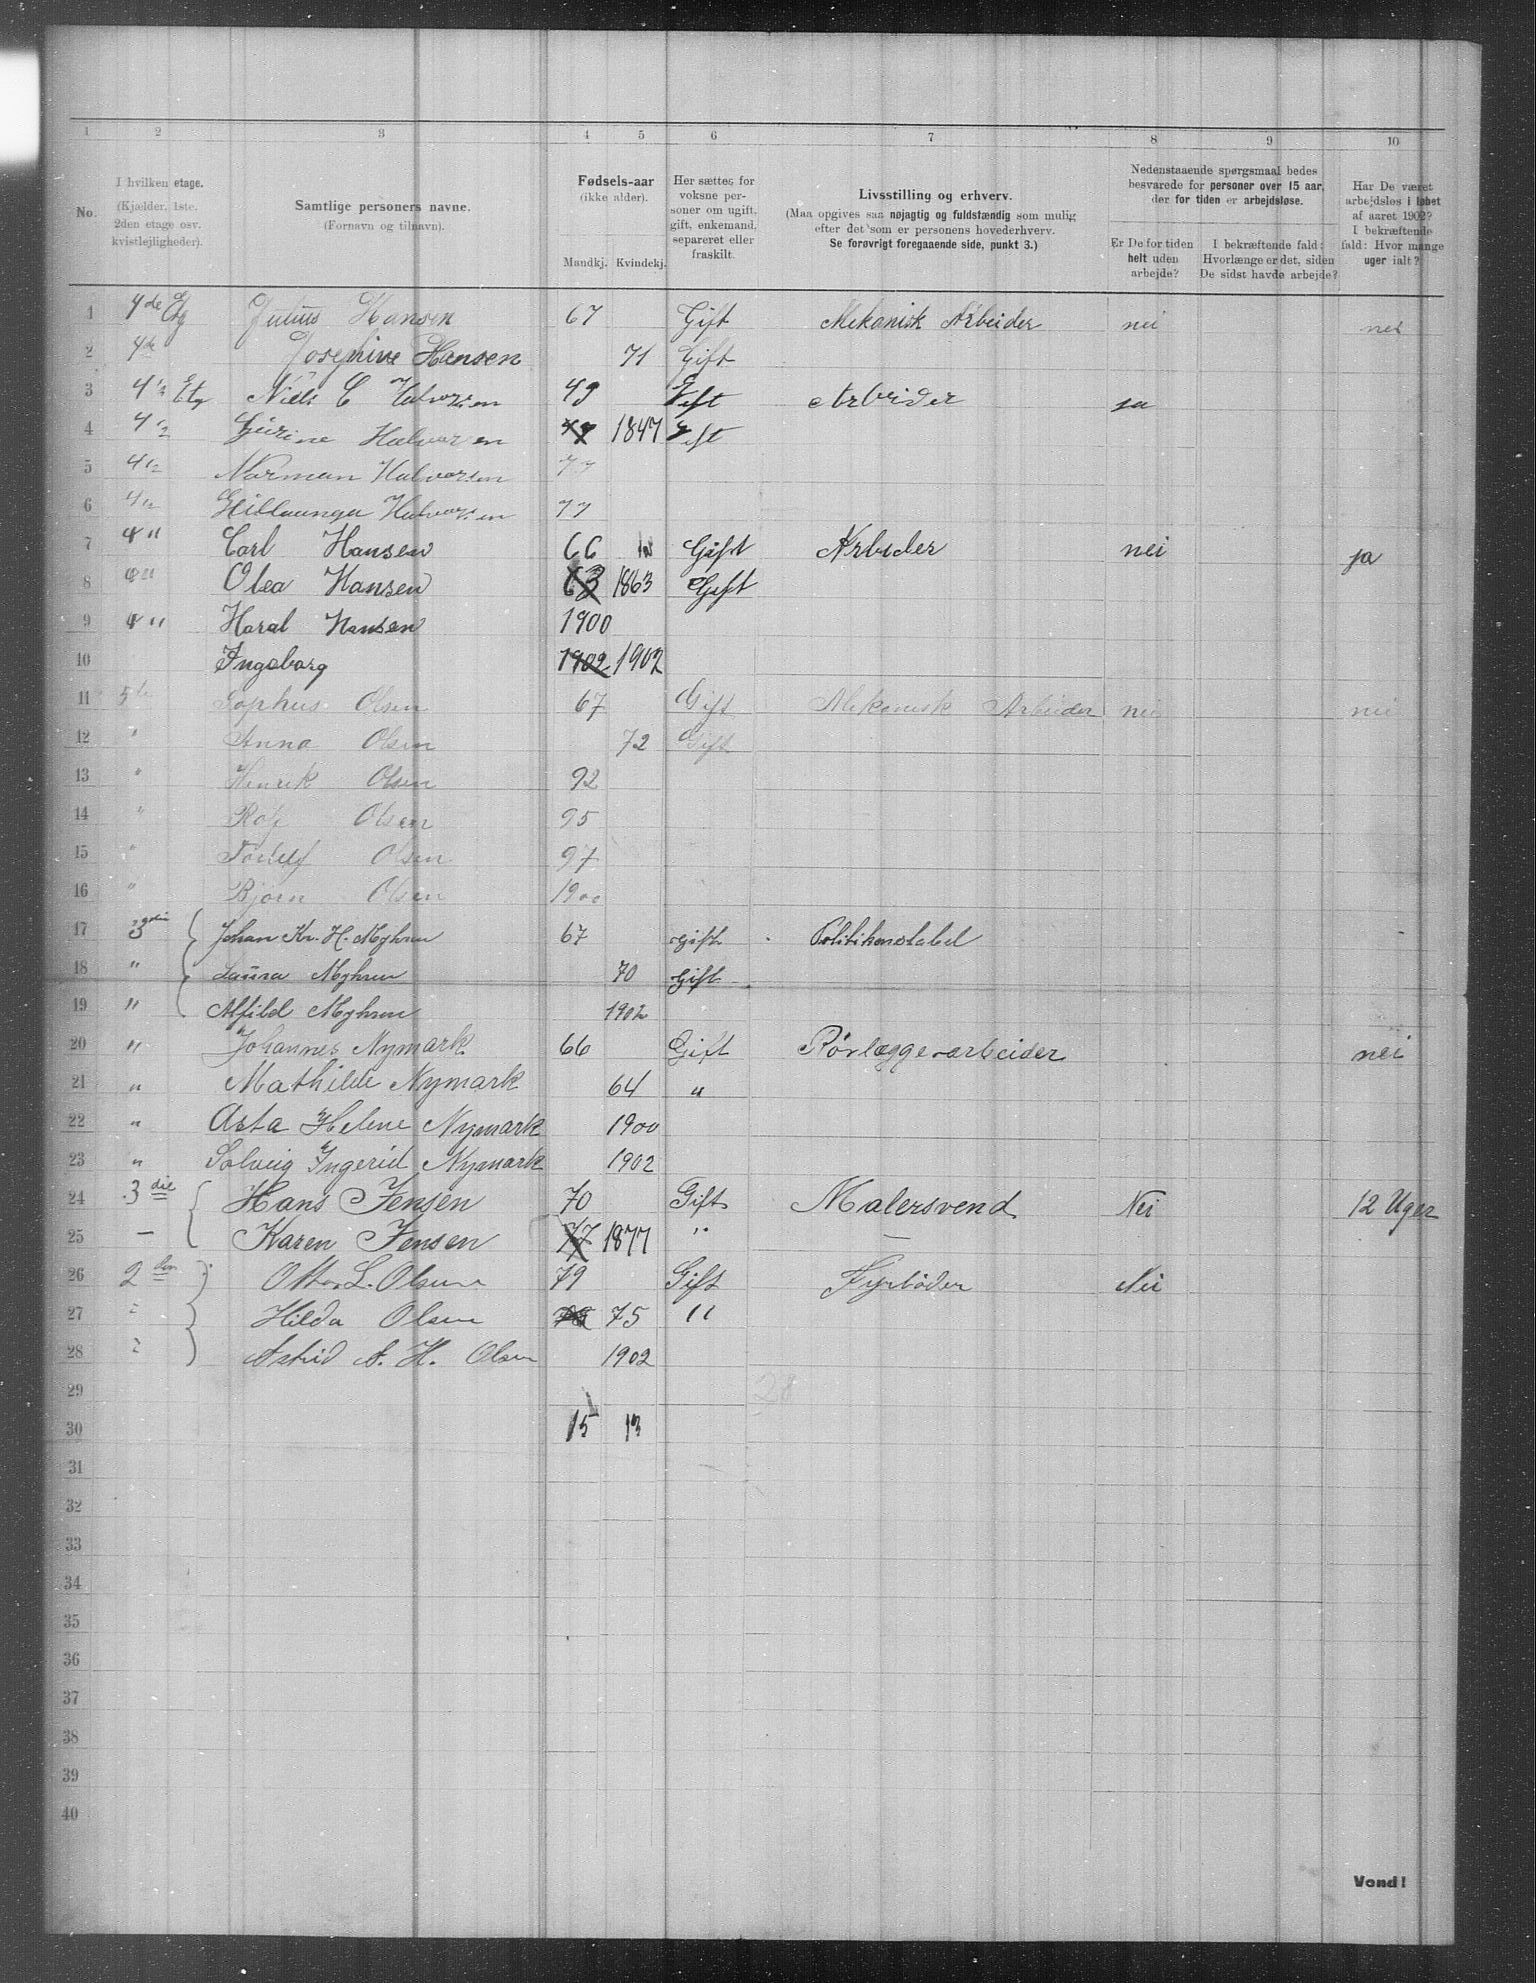 1 2 3 4 5 6 7 8 9 10
No.
I hvilken etage.
(Kjælder, 1ste.
2den etage osv.
kvistlejligheder).
Samtlige personers navne.
(Fornavn og tilnavn).
Fødsels-aar
(ikke alder).
Mandkj. Kvindekj.
Her sættes for
voksne per-
soner om ugift,
gift, enkemand,
separeret eller
fraskilt.
Livsstilling og erhverv.
(Maa opgives saa nøjagtig og fuldstændig som mulig
efter det som er personens hovederhverv.
Se forøvrigt foregaaende side, punkt 3.)
Nedenstaaende spørgsmaal bedes
besvarede for personer over 15 aar,
der for tiden er arbejdsløse.
Er De for tiden
helt uden
arbejde?
I bekræftende fald:
Hvorlænge er det, siden
De sidst havde arbejde?
Har De været
arbejdsløs i løbet
af aaret 1902?
I bekræftende
fald: Hvor mange
uger ialt?
1 4de Etg Julius Hansen 67 Gift Mekanisk Arbeider nei nei
2 4de Josephine Hansen 71 Gift
3 4 1/2 Etg Niels C Halvorsen 49 Gift Arbeider ja
4 4 1/2 Gurine Halvorsen 1847 Gift
5 4 1/2 Norman Halvorsen 77
6 4 1/2 Halvorsen 77
7 4 " Carl Hansen 66 Gift Arbeider nei ja
8 4 " Olea Hansen 63 1863 Gift
9 4 " Haral Hansen 1900
10 Ingeborg 1902 1902
11 5te Sophus Olsen 67 Gift Mekanisk Arbeider nei nei
12 " Anna Olsen 72 Gift
13 " Henrik Olsen 92
14 " Rolf Olsen 95
15 " Olsen 97
16 " Bjørn Olsen 1900
17 3 Johan Kr. H. Myhren 67 gift Politikonstabel -
18 " Laura Myhren 70 gift
19 " Alfild Myhren 1902
20 " Johannes Nymark 66 Gift Rørlæggerarbeider nei
21 " Mathilde Nymark 64 "
22 " Asta Helene Nymark 1900
23 " Solveig Ingerid Nymark 1902
24 3die Hans Jensen 70 Gift Malersvend Nei 12 Uger
25 — Karen Jensen 77 1877 " —
26 2den Otto L. Olsen 79 Gift Fyrbøder Nei
27 " Hilda Olsen 75 "
28 " Astrid A. H. Olsen 1902
29 28
30 15 13
31
32
33
34
35
36
37
38
39
40
Vend!